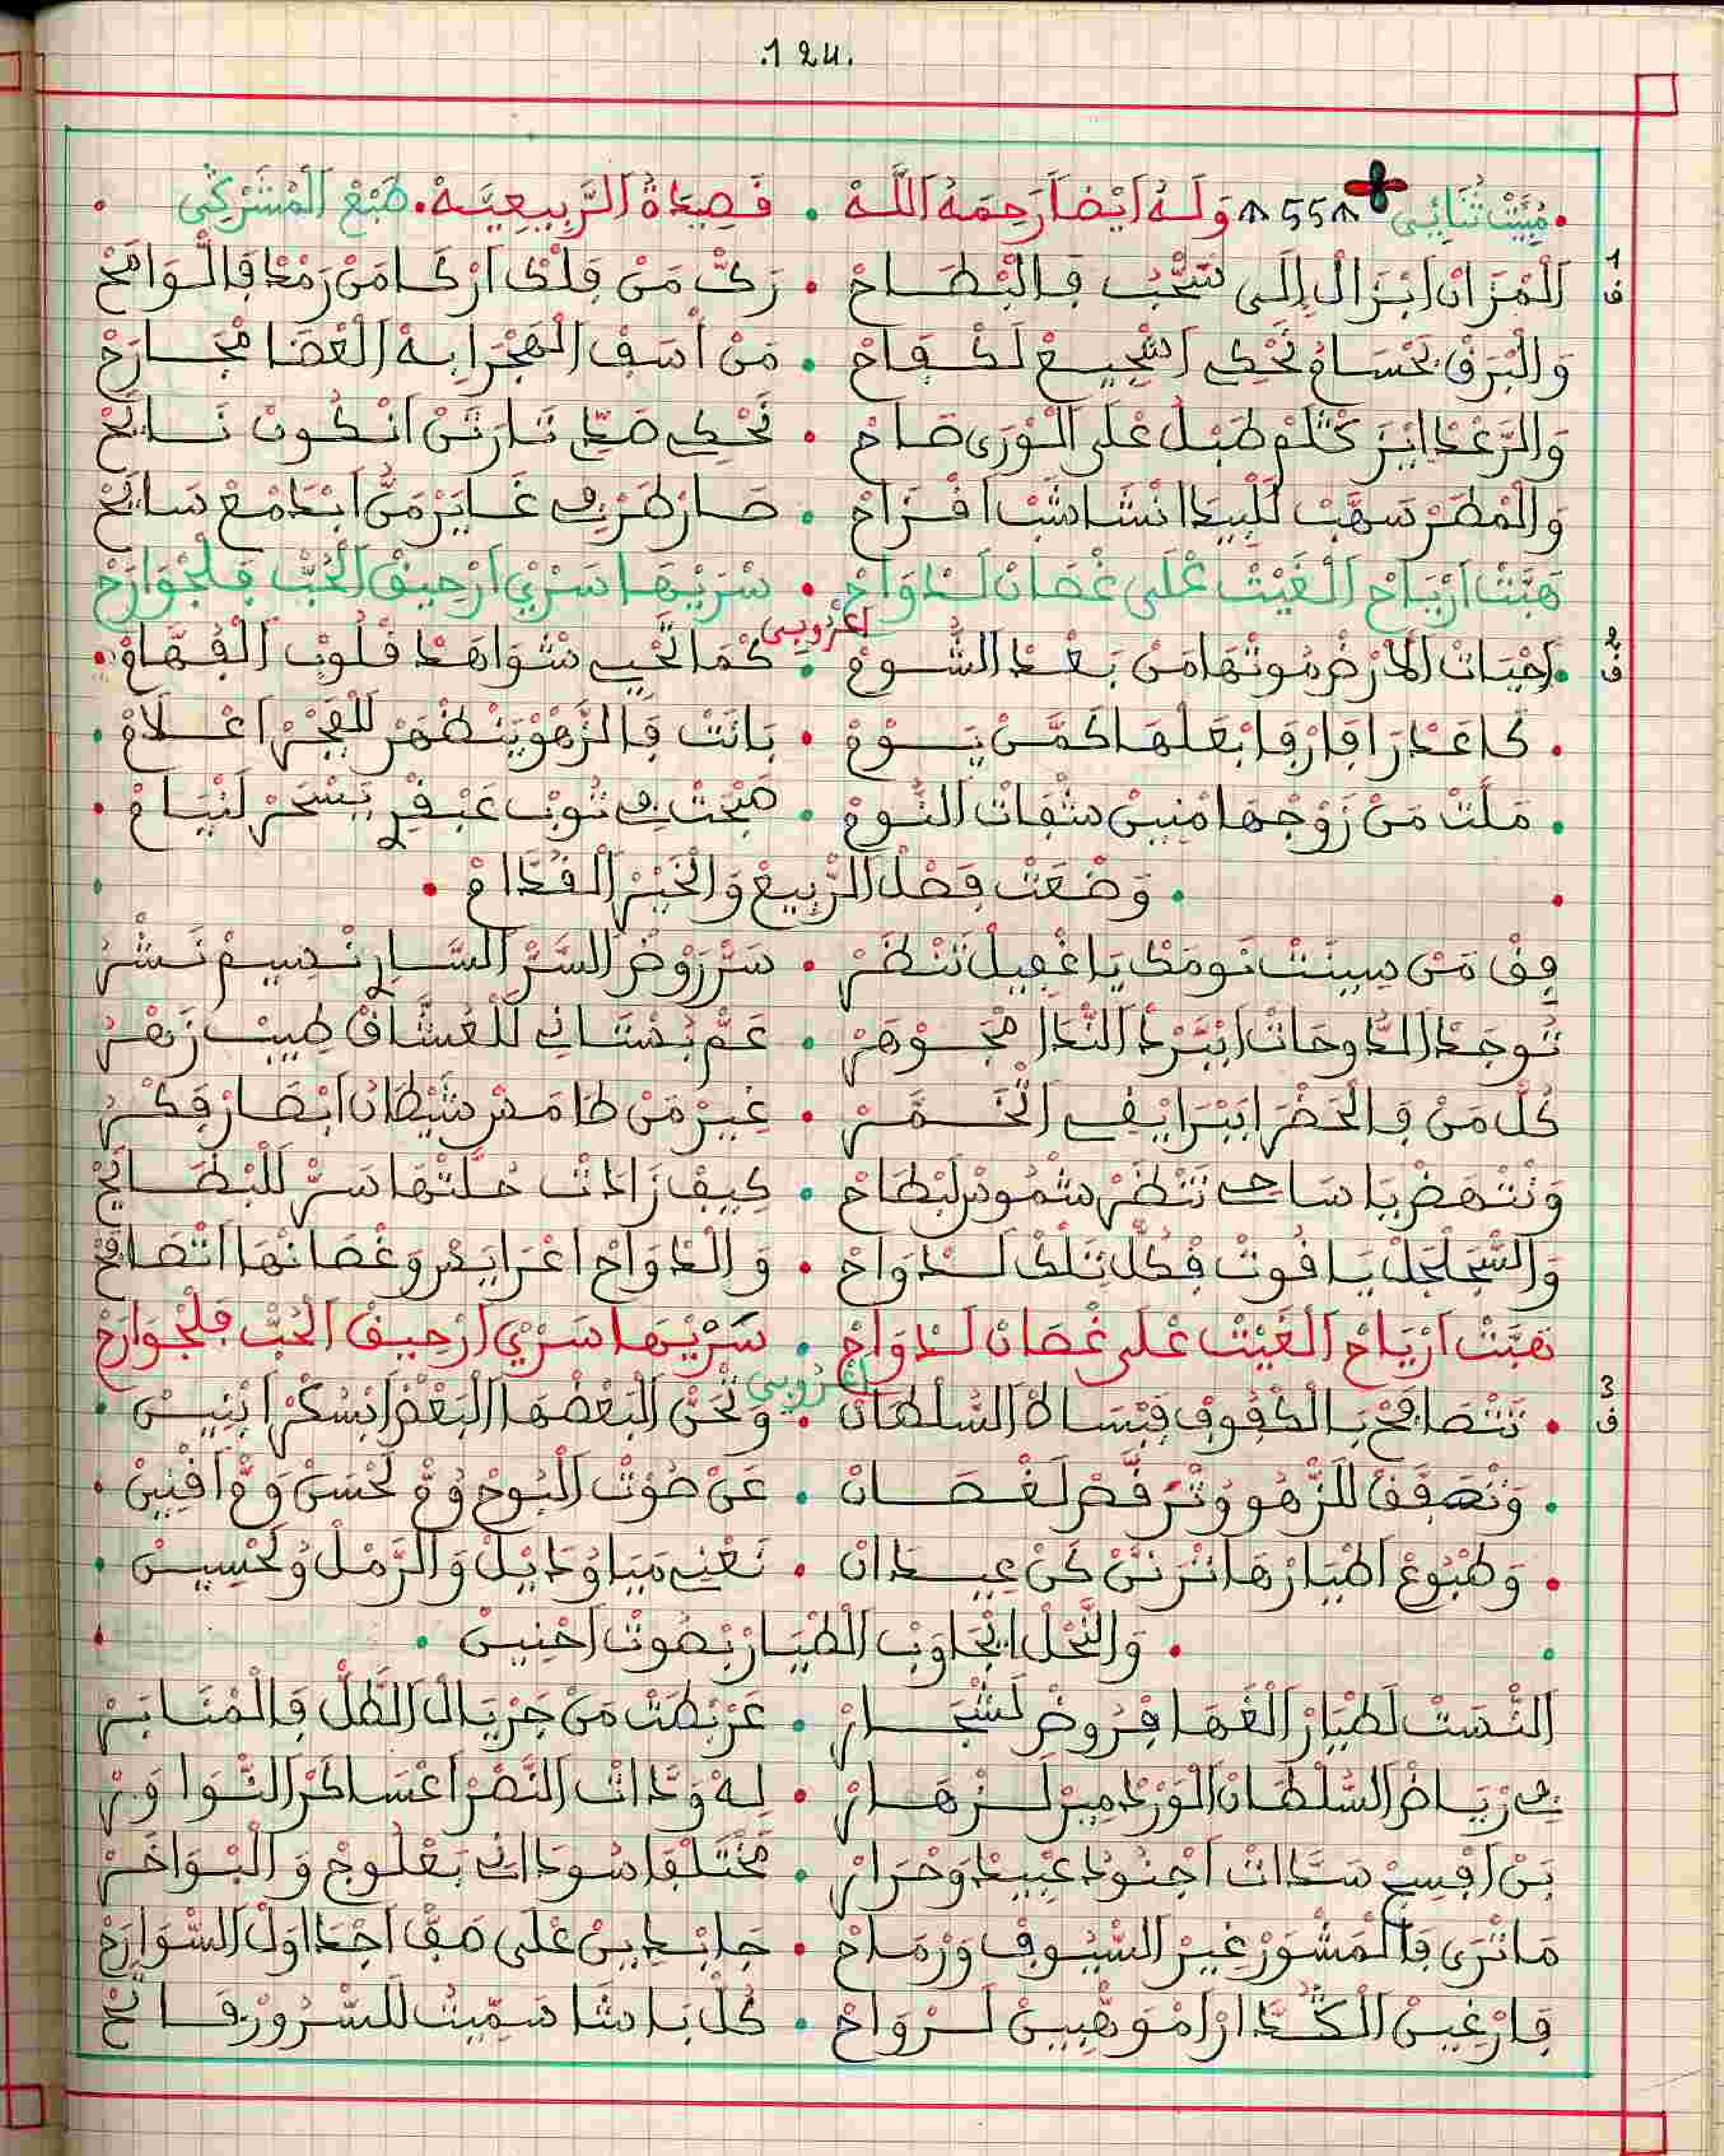 .124.
مْبَيَّتْ ثُنَائِي ∧55∧ وَلَهُ أَيْضاً رَحِمَهُ اللَّهُ . قَصِيدَةُ الرَّبِيعِيَّةْ . طَبْعْ الْمْشَرْكِي
1 ف
الْمْزَانْ ابْزَالْ إِلَى سَحْبْ فَالْبْطَاحْ . رَكّْ مَنْ فَلْكْ ارْكَامَنْ رَمْدْ فَالْوَامَحْ
وَالْبَرْقْ بَحْسَامُ تَحْكِ اشْجِيعْ لَكْفَاحْ . مَنْ اسَفْ الْهَجْرَ ابِهْ الْعْضَا مْجَارَحْ
وَالرَّعْدْ ايْزَ كْتَلُمْ طَبْلُ عْلَى الْوْرَى صَاحْ . تَحْكِ صَدِّ نَارْتَنْ انْكُونْ نَايَحْ
وَالْمْطَرْ سَهْبْ لَلْبِيدَا انْشَاشَبْ افْرَاحْ . صَارْ طَرْفِي غَايَرْ مَنُّ ابْدَمْعْ سَايَحْ
هَبَّتْ ارْيَاحْ الْغَيْتْ عْلَى غْصَانْ لَدْوَاحْ . سَرْيْهَا سَرْيْ ارْحِيقْ الْحُبّْ فَلْجْوَارَحْ
2 ف
احْيَاتْ الَارْضْ مُوتْهَا مَنْ بَعْدْ الشُّومْ . اعْرُوبِي . كْمَا تْحْيِي شْوَاهَدْ قْلُوبْ الْفُهَّامْ
كَاعَدْرَا فَارْقَا بْعَلْهَا كَمَّنْ يَوْمْ . بَانَتْ فَالزّْهُو يَنْظْهَرْ لَلْفَجْرْ اعْلَامْ
مَلَّتْ مَنْ زَوْجْهَا مْنِينْ شْفَاتْ النُّومْ . صْبْحَتْ فِي تُوبْ عَبْقَرِ يَسْحَرْ لَنْيَامْ
. وَضْعَتْ فَصْلْ الرّْبِيعْ وَالْخَيْرْ الْقُدَّامْ .
فِقْ مَنْ سِينَتْ نَومَكْ يَا غْفِيلْ تَنْظَرْ . سَرّْ رَوْضْ السَّرّْ السَّارِ نْسِيمْ نَشْرُ
تُوجَدْ الدَّوحَاتْ ابْبَرْدْ النّْدَا مْجَوْهَرْ . عَمّْ بُسْتَانِي لَلْعُشَّاقْ طِيبْ زَهْرُ
كُلّْ مَنْ فَالْحَضْرَ ابْبَرَا يْفِي الْخَمَّرْ . غِيرْ مَنْ طَامَسْ شَيْطَانْ ابْصَارْ فَكْرُ
وَنْتْهَضْ يَا سَاحِي تَنْظَرْ شْمُوسْ لَبْطَاحْ . كِيفْ زَادَتْ حُلَّتْهَا سَرّْ لَلْبْطَايَحْ
وَالسّْجَلْجَلْ يَاقُوتْ فْكُلّْ تَلْكْ لَدْوَاحْ . وَالْدْوَاحْ اعْرَايَسْ وَغْصَانْهَا اتْصَافَحْ
هَبَّتْ ارْيَاحْ الْغَيْتْ عْلَى غْصَانْ لَدْوَاحْ . سَرْيْهَا سَرْيْ ارْحِيقْ الْحُبّْ فَلْجْوَارَحْ
3 ف
تَتْصَافَحْ بَالْكْفُوفْ فَبْسَاطْ السُّلْطَانْ . اعْرُوبِي . وَتْحَنّْ الْبَعْضْهَا الْبَعْضْ ابْسُكْرْ ابْنِينْ
وَتْصَفَّقْ لَلزّْهُو وُتْرَقَّصْ لَغْصَانْ . عَنْ صُوتْ الْبُوحْ وُمّْ لَحْسَنْ وَمّْ افْنِينْ
وَطْبُوعْ اطْيَارْهَا تْرَنَّنْ كَنْ عِيدَانْ . تَغْنِي مَيَا وُدَايْلْ وَالرَّمْلْ وُلَحْسِينْ
. وَالنّْحَلْ اتْجَاوَبْ الْطْيَارْ بْصُوتْ احْنِينْ .
النّْسَتْ لَطْيَارْ الْغَهَا فْرُوضْ لَشْجَارْ . عَرْبْطَتْ مَنْ جَرْيَالْ الطَّلّْ فَالْمْنَابَرْ
فِي رْيَاضْ السُّلْطَانْ الْوَرْدْ مِيرْ لَزْهَارْ . لِهْ وَدَّاتْ النَّصْرْ اعْسَاكَرْ النّْوَاوَرْ
بَنْ افْسِحْ سَدَّاتْ اجْنُودْ عْبِيدْ وَحْرَارْ . مَخْتَلْفَا سُودَانِي بَعْلُوجْ وَالْبْوَاخَرْ
مَاتْرَى فَالْمَشْوَرْ غِيرْ السّْيُوفْ وَرْمَاحْ . جَابْدِينْ عْلَى صَفّْ اجْدَاوَلْ السّْوَارَحْ
فَارْغِينْ الْكُدَّارْ امْوَهّْبِينْ لَرْوَاحْ . كُلّْ بَاشَا سَمِّيتُ لَلسّْرُورْ فَاتَحْ